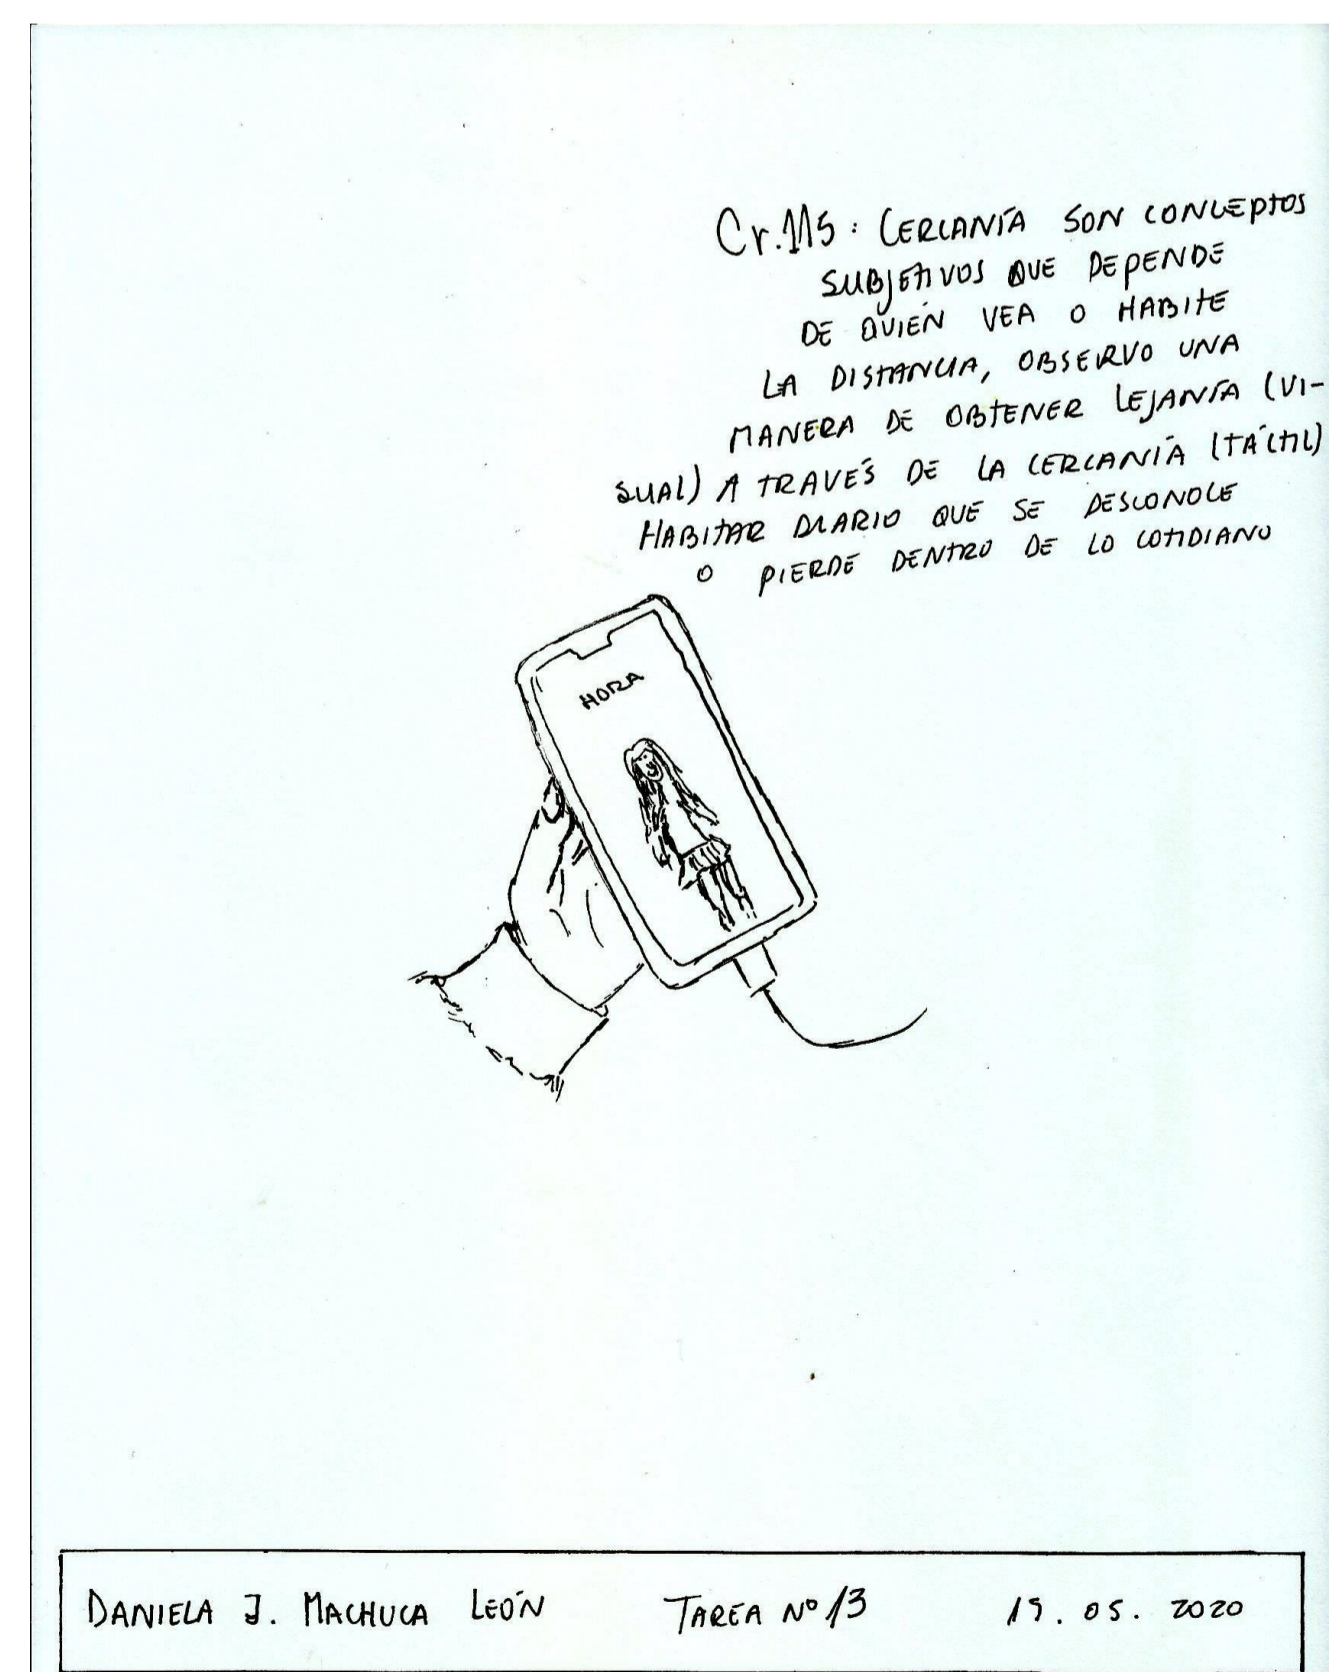 Cr.115: CERCANÍA SON CONCEPTOS
SUBJETIVOS QUE DEPENDE
DE QUIÉN VEA O HABITE
LA DISTANCIA, OBSERVO UNA
MANERA DE OBTENER LEJANÍA (VI-
SUAL) A TRAVÉS DE LA CERCANÍA (TÁCTIL)
HABITAR DIARIO QUE SE DESCONOCE
O PIERDE DENTRO DE LO COTIDIANO
HORA
DANIELA J. MACHUCA LEÓN TAREA Nº 13 19.05.2020